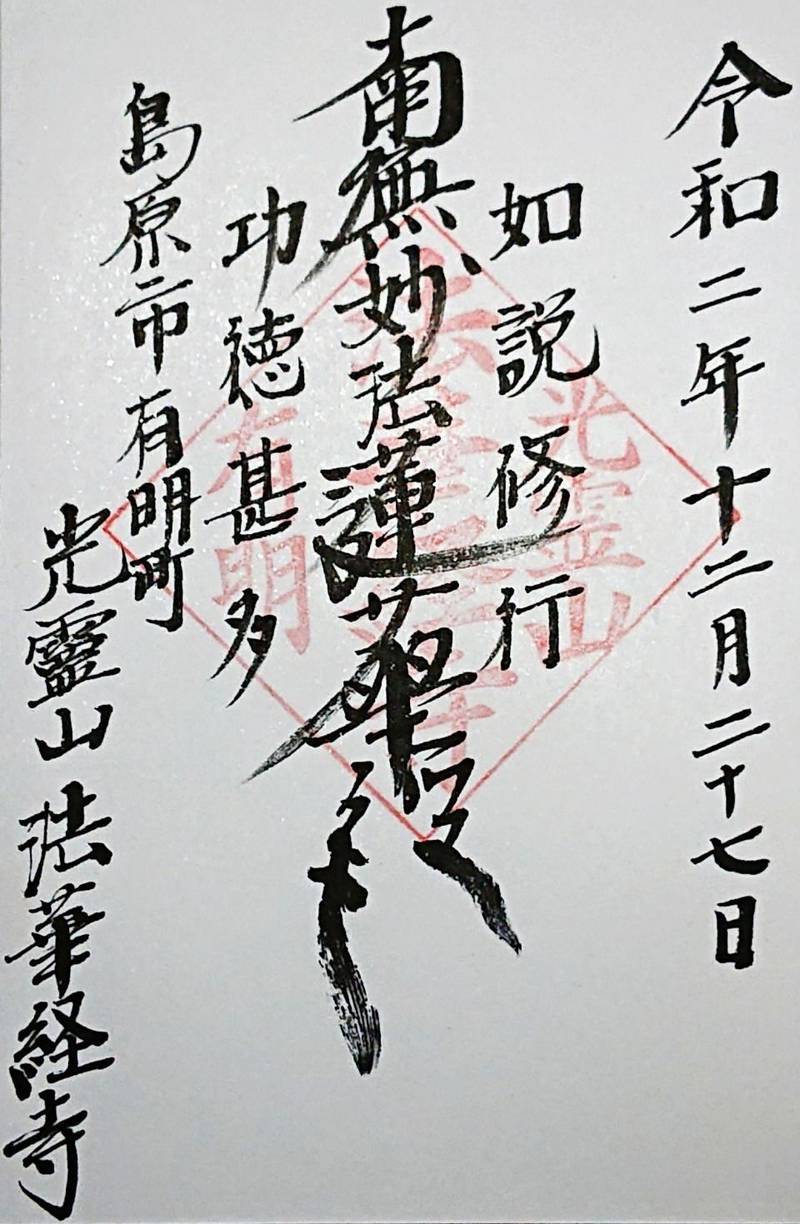 令和二年十二月二十七日
如説修行
南無妙法蓮華経
功徳甚多
島原市有明町
光靈山法華経寺
光霊山
法華経寺
有明